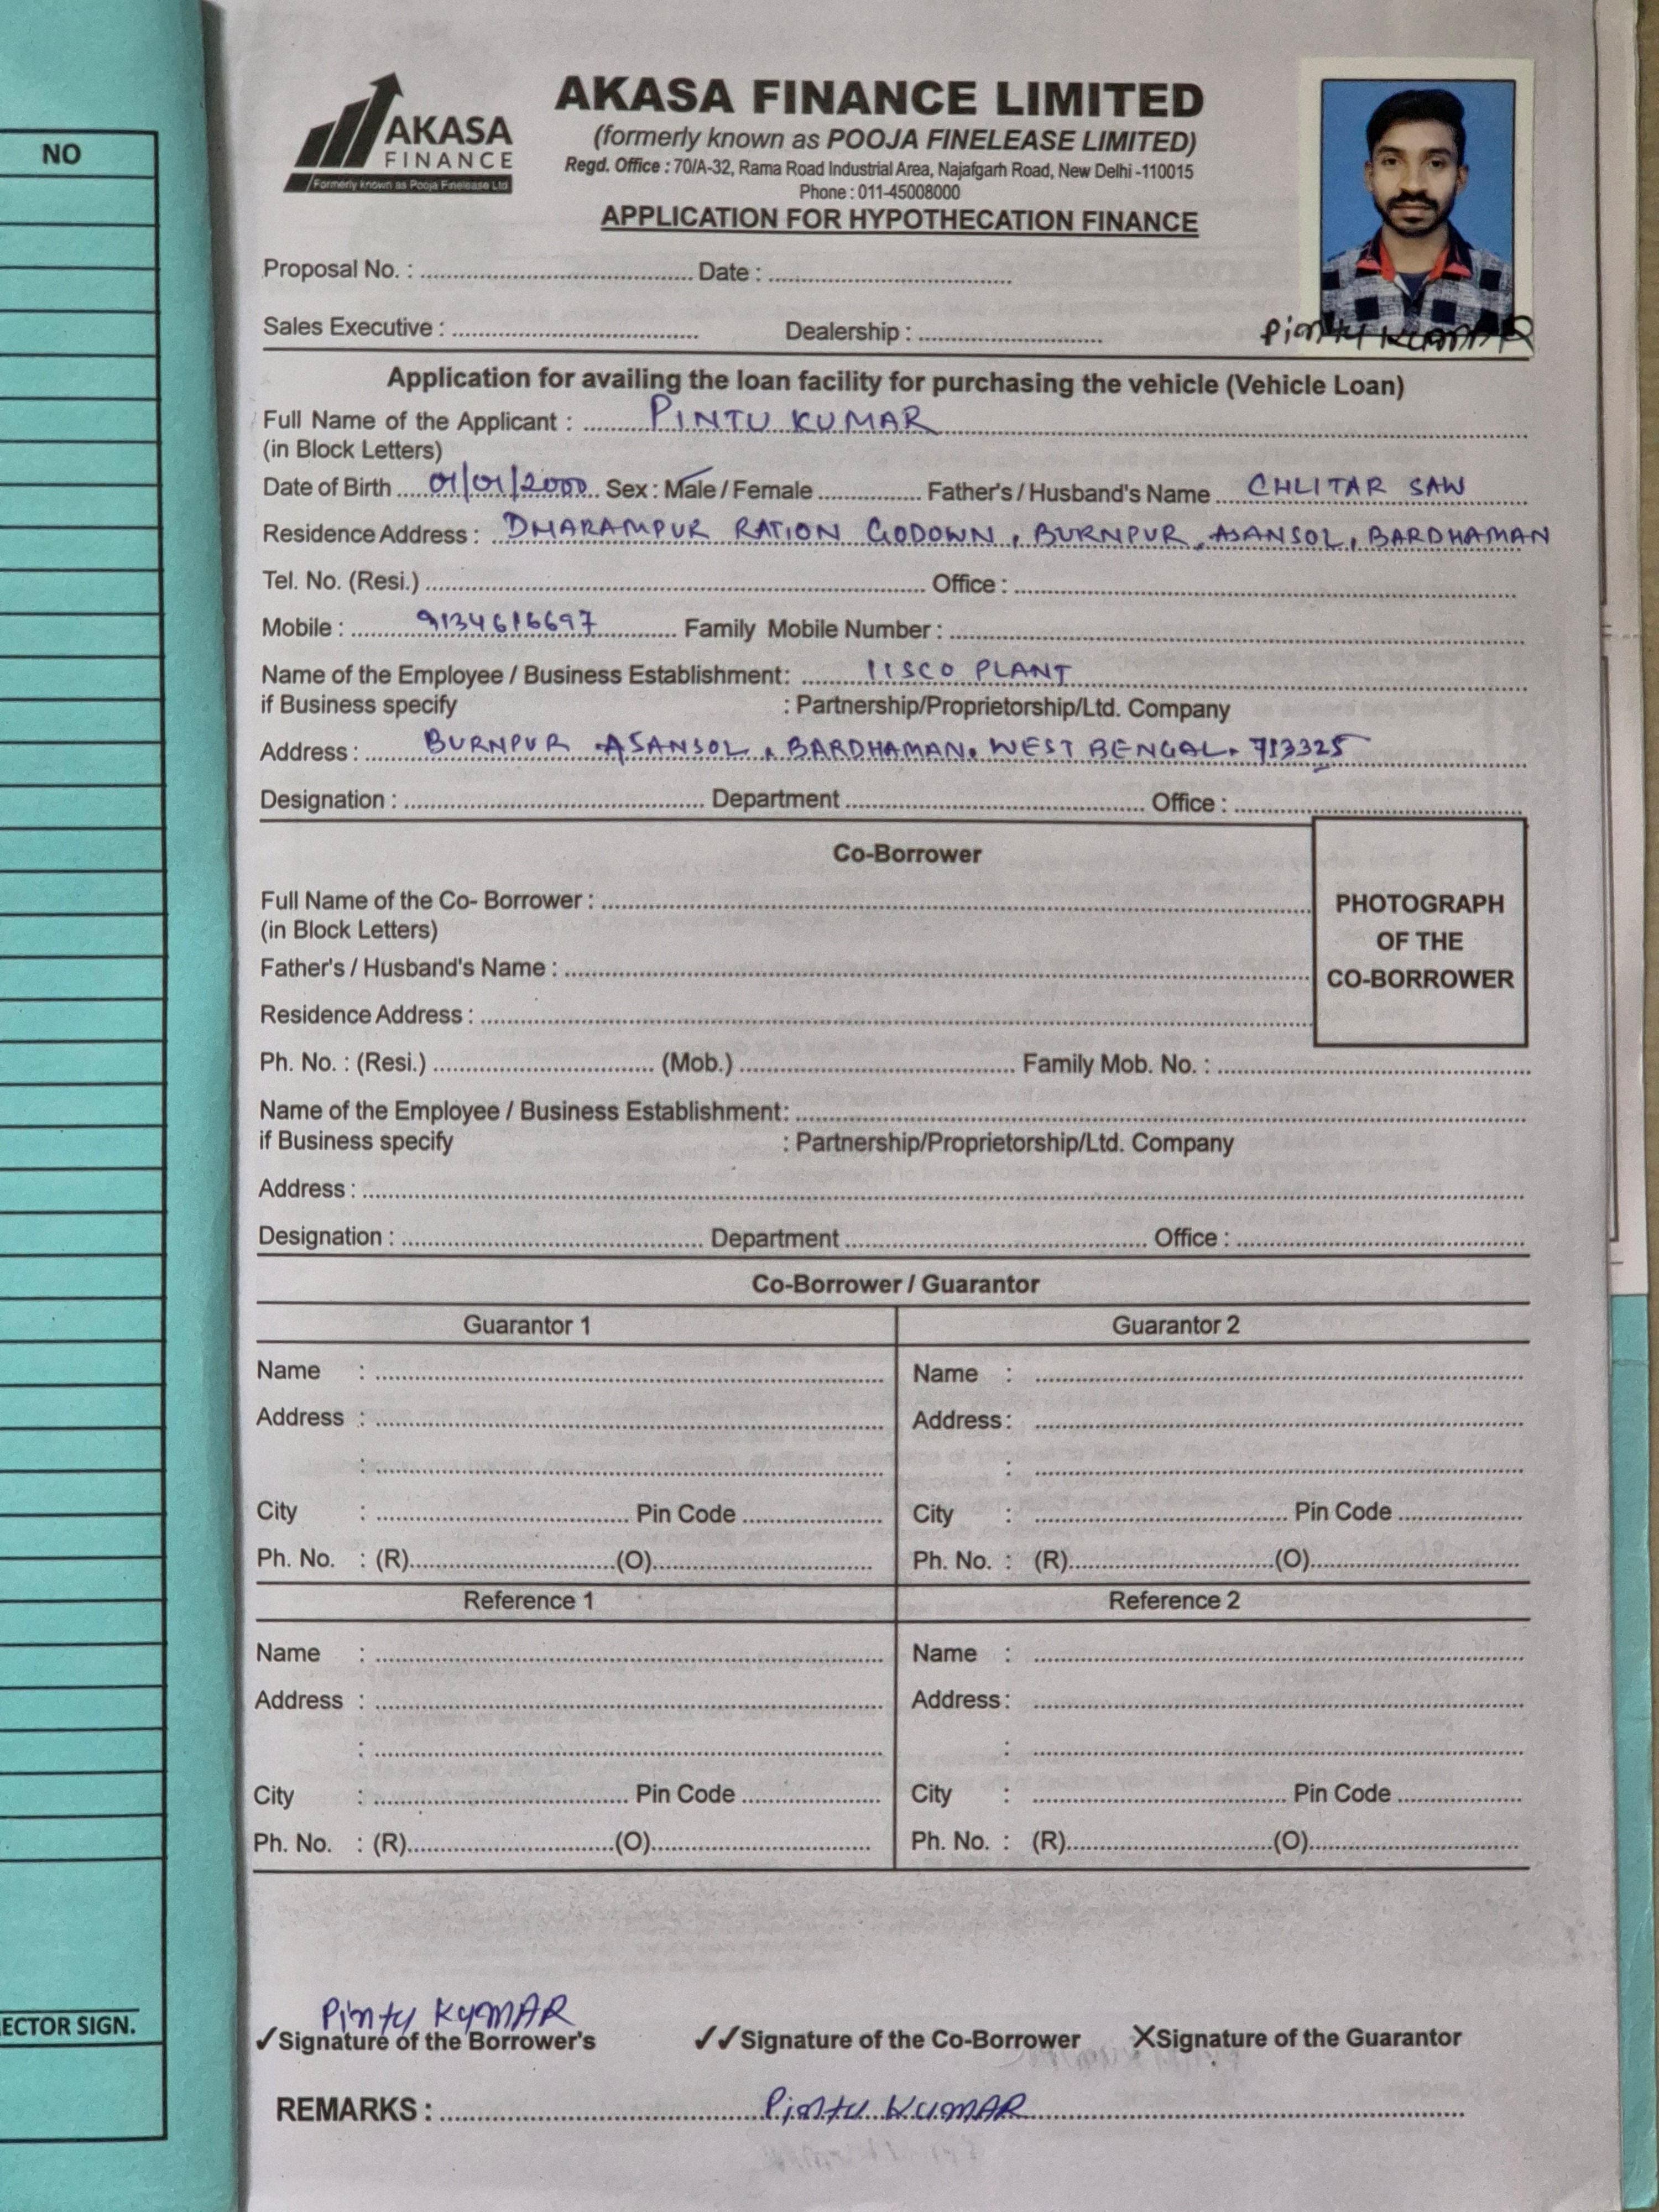 NO
AKASA
FINANCE
Formerly known as Pooja Finelease Ltd
AKASA FINANCE LIMITED
(formerly known as POOJA FINELEASE LIMITED)
Regd. Office : 70/A-32, Rama Road Industrial Area, Najafgarh Road, New Delhi -110015
Phone : 011-45008000
APPLICATION FOR HYPOTHECATION FINANCE
Proposal No. : Date :
Sales Executive : Dealership :
Pintu KUMAR
Application for availing the loan facility for purchasing the vehicle (Vehicle Loan)
Full Name of the Applicant : PINTU KUMAR
(in Block Letters)
Date of Birth 01/01/2000 Sex : Male / Female Father's / Husband's Name CHLITAR SAW
Residence Address : DHARAMPUR RATION GODOWN, BURNPUR, ASANSOL, BARDHAMAN
Tel. No. (Resi.) Office :
Mobile : 9134616697 Family Mobile Number :
Name of the Employee / Business Establishment: IISCO PLANT
if Business specify : Partnership/Proprietorship/Ltd. Company
Address : BURNPUR ASANSOL, BARDHAMAN, WEST BENGAL, 713325
Designation : Department Office :
Co-Borrower
Full Name of the Co- Borrower :
(in Block Letters)
Father's / Husband's Name :
Residence Address :
PHOTOGRAPH
OF THE
CO-BORROWER
Ph. No. : (Resi.) (Mob.) Family Mob. No. :
Name of the Employee / Business Establishment:
if Business specify : Partnership/Proprietorship/Ltd. Company
Address :
Designation : Department Office :
Co-Borrower / Guarantor
Guarantor 1 Guarantor 2
Name : Name :
Address : Address :
: :
City : Pin Code City : Pin Code
Ph. No. : (R) (O) Ph. No. : (R) (O)
Reference 1 Reference 2
Name : Name :
Address : Address :
: :
City : Pin Code City : Pin Code
Ph. No. : (R) (O) Ph. No. : (R) (O)
Pintu KUMAR
✓Signature of the Borrower's ✓✓Signature of the Co-Borrower XSignature of the Guarantor
REMARKS : Pintu KUMAR
ECTOR SIGN.